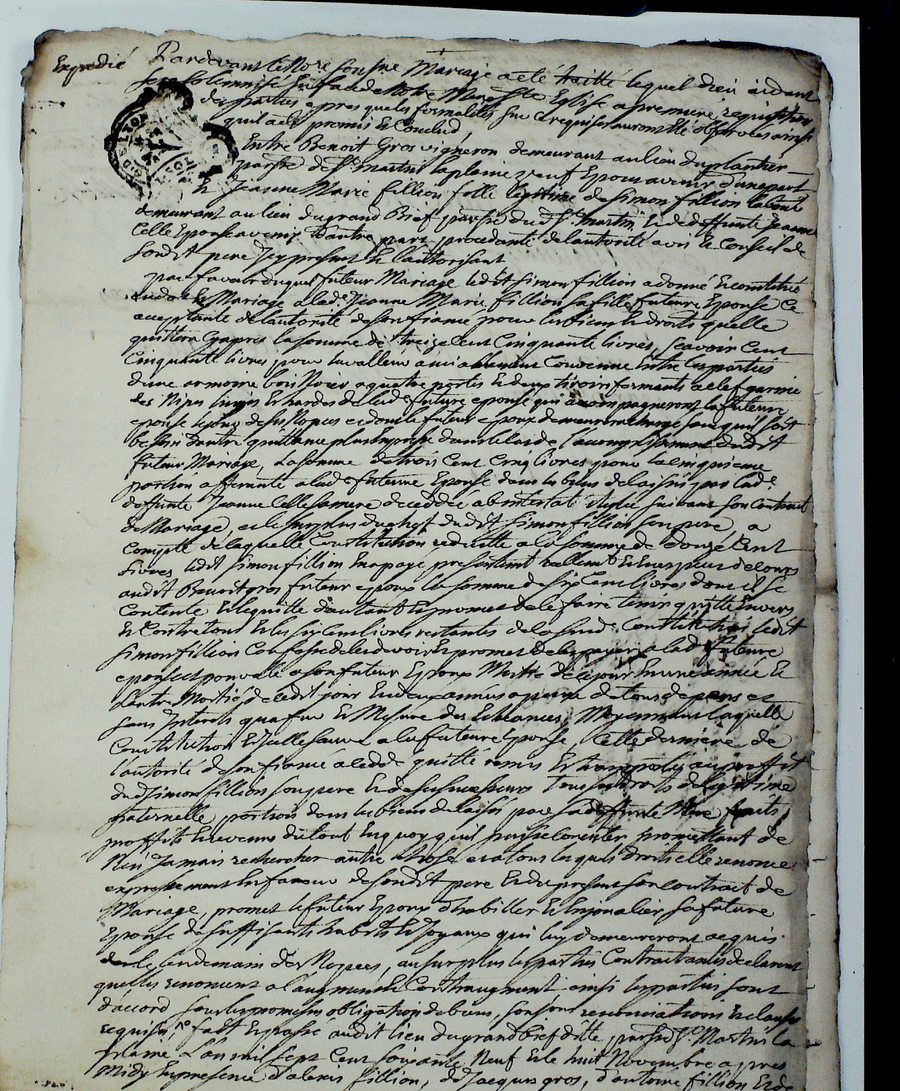 Expedié
Pardevant le Nore soussigné Mariage a été traitté lequel Dieu aidant
sera solemnisé en face de Notre Mere Ste Eglise a premiere requisition
des parties apres que les formalités sur ce requises auront été observées ainsi
qu'il a été promis et Conclud,
Entre Benoit Gros vigneron demeurant au lieu du plantier
parsse de St Martin la plaine veuf Epoux avenir d'une part
Et Jeanne Marie fillion fille legitime de Simon fillion
demeurant au lieu du grand Bref parsse dud St Martin, Et de deffunte Jeanne
Celle Epouse avenir D'autre part, procedante de l'autorité avis et Conseil de
son dit pere Icy present et l'authorisant
par faveur duquel futeur Mariage ledit Simon fillion a donné et constitué
en dot et Mariage a lade Jeanne Marie fillion sa fille future Epouse Ce
acceptante de l'autorité de son fiancé pour les biens et droits quelle
quittera cy apres la somme de treize Cent Cinquante livres, scavoir Cent
Cinquante livres, pour la valleur ainsi Convenue Entre les parties
d'une armoire bois Noyer a quatre portes et deux tiroirs fermants a clef garnie
des Nipes linges et hardes de lade future epouse qui accompagneront la future
epouse le jour de ses Nopces et dont le futeur epoux demeurera chargé sans qu'il soit
besoin d'autre quittance plus expresse dans l'accomplissement dudit
futeur Mariage, La somme de trois Cent Cinq livres pour la cinquieme
portion afferante a lad future Epouse dans les biens delaissés par lade
deffunte Jeanne Celle sa mere decedée abintestat suivant son Contrat
de Mariage, et le surplus du chef dudit Simon fillion son pere, a
Compte de laquelle Constitution reduitte a la somme de douze Cent
livres ledit Simon fillion En a payé presentement reellemt Et En especes de cours
audit Benoit gros futeur epoux la somme de six Cent livres dont il se
Contente et l'en quitte d'autant Et promet de le faire tenir quitte Envers
Et Contre tous Et les six Cent livres restantes de la susde Constitution ledit
Simon fillion Confesse de les devoir Et promet de les payer a lad future
epouse et pour elle a son futeur Epoux Moitié de ce jour En une année Et
l'autre Moitié de cedit jour En deux années a peine de tous depens et
sans Interets qu'a fur Et Mesure des Echeances, Moyennant laquelle
Constitution Et icelle sauve a la future Epouse, Cette derniere de
l'autorité de son fiancé a cedé quitté remis Et transporté au proffit
dud Simon fillion son pere Et de ses successeurs Tous ses droits de legitime
maternelle, portion dans les biens delaissés par sa deffunte Mere fruits
proffits Et revenus du tout En quoy qu'ils puissent consister promettant de
N'en Jamais rechercher autre chose, a tous lesquels droits elle renonce
expressement En faveur de sondit pere Et du present son Contrat de
Mariage, promet le futeur Epoux d'habiller Et Enjoualier sa future
Epouse de suffisants habits Et Joyaux qui luy demeureront acquis
des le lendemain des Nopces, au surplus les parties Contractantes declarent
quelles renoncent a l'augment et Contraugment ainsi les parties sont
d'accord sous les promesses obligation de biens, renonciations Et clauses
requises fait Et passé audit lieu du grand bref ditte parsse St Martin la
plaine L'an mil sept Cent soixante Neuf Et le huit Novembre apres
Midy En presence d'alexis fillion, de Jacques gros, d'antoine fillion